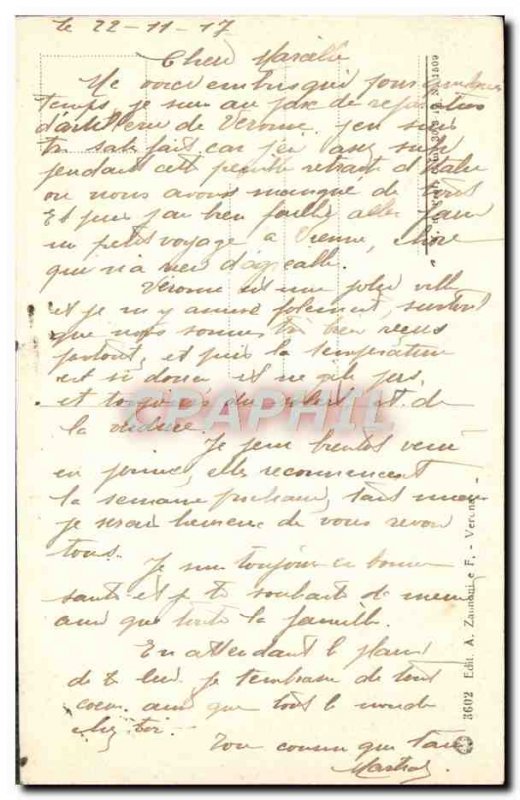 le 22-11-17
Cher Marcelle
Me voici embusqué pour quelques
temps je suis au parc de réparation
d'artillerie de Vérone. J'en suis
très satisfait car j'ai assez
pendant cette pénible retraite d'Italie
ou nous avons manqué de tout
Et puis j'ai bien failli aller faire
un petit voyage a Vienne, chose
qui n'a rien d'agréable.
Vérone est une jolie ville
et je m'y amuse follement, surtout
que nous sommes très bien reçus
partout, et puis la température
est si douce il ne gèle pas,
et toujours du soleil et de
la verdure.
Je peux bientôt venir
en perme, elles recommencent
la semaine prochaine, tant mieux
je serai heureux de vous revoir
tous.
Je suis toujours en bonne
santé et je te souhaite de même
ainsi que toute la famille.
En attendant le plaisir
de te lire je t'embrasse de tout
coeur ainsi que tout le monde
chez toi.
Ton cousin qui t'aime
CPAPHIL
3602 Edit. A. Zannoni e F. - Verona